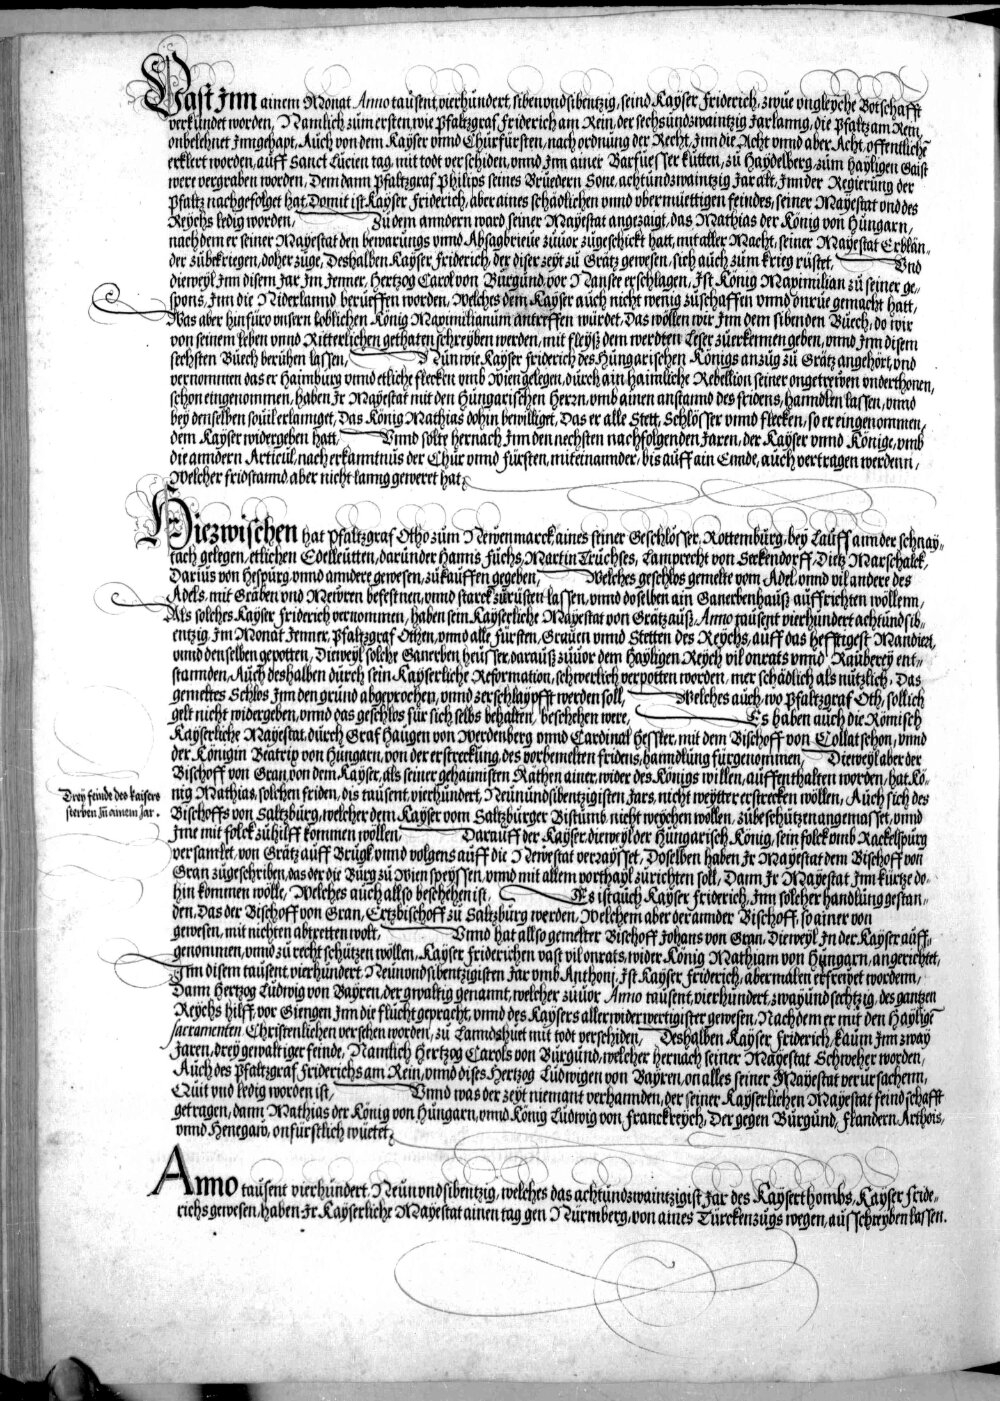 Vast Jnn ainem Monat Anno tausent, vierhundert, sibenvndsibentzig, seind Kayser Friderich, zwue vngleyche Botschafft
verkundet worden, Namlich zum ersten wie Pfaltzgraf Friderich am Rein, der sechsundzwaintzig Jar lanng, die Pfaltz am Rein,
onbelehnet Jnngehapt, Auch von dem Kayser vnnd Churfürsten, nach ordnung der Recht, Jnn die Acht vnnd aber Acht, offentlichē
erklert worden, auff Sanct Lucien tag, mit todt verschiden, vnnd Jnn ainer Barfuesser kutten, zu Haydelberg, zum hayligen Gaist
were vergraben worden, Dem dann Pfaltzgraf Philips seines Bruedern Sone, achtundzwaintzig Jar alt, Jnn der Regierung der
Pfaltz nachgefolget hat, Domit ist Kayser Friderich, aber aines schädlichen vnnd vbermuettigen feindes, seiner Mayestat vnd des
Reychs ledig worden, Zu dem anndern ward seiner Mayestat angezaigt, das Mathias der König von Hungarn,
nach dem er seiner Mayestat den bewarungs vnnd Absagbrieue zuuor zugeschickt hatt, mit aller Macht, seiner Mayestat Erblän-
der zubekriegen, doher zuge, Deshalben Kayser Friderich, der diser zeyt zu Grätz gewesen, sich auch zum krieg rüstet. Vnd
dieweyl Jnn disem Jar Jm Jenner, Hertzog Carol von Burgund, vor Nanse erschlagen, Jst König Maximilian zu seiner ge-
spons, Jnn die Niderlannd berueffen worden, Welches dem Kayser auch nicht wenig zuschaffen vnnd onrue gemacht hatt,
Was aber hinfuro vnsern loblichen König Maximilianum antreffen würdet, Das wöllen wir Jnn dem sibenden Buech, do wir
von seinem leben vnnd Ritterlichen gethaten schreyben werden, mit fleysz dem werdten Leser zuerkennen geben, vnnd Jnn disem
sechsten Buech beruhen lassen, Nun wie Kayser Friderich des Hungarischen Königs anzug zu Grätz angehört, vnd
vernommen das er Haimburg vnnd etliche flecken vmb Wien gelegen, durch ain haimliche Rebellion seiner ongetrewen vnderthonen,
schon eingenommen, haben Jr Mayestat mit den Hungarischen Herrn, vmb ainen anstannd des fridens, hanndlen lassen, vnnd
bey denselben souil erlannget, Das König Mathias dohin bewilliget, Das er alle Stett, Schlösser vnnd flecken, so er eingenommen,
dem Kayser widergeben hatt, Vnnd solte hernach Jnn den nechsten nachfolgenden Jaren, der Kayser vnnd Könige, vmb
die anndern Articul, nach erkanntnus der Chur vnnd Fürsten, miteinannder, bis auff ain Ennde, auch vertragen werdenn,
Welcher fridstannd aber nicht lanng geweret hat,
Hiezwischen hat Pfaltzgraf Otho zum Newenmarck, aines seiner Geschlösser, Rottemburg, bey Lauff an der schnay-
tach gelegen, etlichen Edelleutten, darunder Hanns Fuchs, Martin Truchses, Lamprecht von Seckendorff, Dietz Marschalck,
Darius von Hespurg, vnnd anndere gewesen, zukauffen gegeben, Welches geschlos gemelte vom Adel, vnnd vil andere des
Adels, mit Gräben vnd Mewren befestnen, vnnd starck zurüsten lassen, vnnd doselben ain Ganerbenhausz auffrichten wöllenn,
Als solches Kayser Friderich vernommen, haben sein Kayserliche Mayestat von Grätz ausz, Anno tausent vierhundert achtundsib-
entzig, Jm Monat Jenner, Pfaltzgraf Othen, vnnd alle Fürsten, Grauen vnnd Stetten des Reychs, auff das hefftigest Mandiert,
vnnd denselben gepotten, Dieweyl solche Ganerben heusser, darausz zuuor dem Hayligen Reych vil onrats vnnd Rauberey ent-
stannden, Auch deshalben durch sein Kayserliche Reformation, schwerlich verpotten worden, mer schädlich als nutzlich, Das
gemeltes Schlos Jnn den grund abgeprochen, vnnd zerschlaypfft werden soll, Welches auch, wo Pfaltzgraf Oth, sollich
gelt nicht widergeben, vnnd das geschlos für sich selbs behalten, beschehen were, Es haben auch die Römisch
Kayserliche Mayestat, durch Graf Haugen von Werdenberg vnnd Cardinal Hessler, mit dem Bischoff von Collatschon, vnnd
der Königin Beatrix von Hungarn, von der erstreckung, des vorbemelten fridens, hanndlung fürgenommen, Dieweyl aber der
Bischoff von Gran, von dem Kayser, als seiner gehaimisten Räthen ainer, wider des Königs willen, auffenthalten worden, hat Kö-
nig Mathias, solchen friden, dis tausent, vierhundert, Neunundsibentzigisten Jars, nicht weytter erstrecken wöllen, Auch sich des
Bischoffs von Saltzburg, welcher dem Kayser vom Saltzburger Bistumb, nicht weychen wollen, zubeschützen angemasset, vnnd
Jme mit folck zuhilff kommen wöllen Darauff der Kayser, dieweyl der Hungarisch König, sein folck vmb Rackelspurg
versamlet, von Grätz auff Brugk, vnnd volgens auff die Newestat verraysset, Doselben haben Jr Mayestat dem Bischoff von
Gran zugeschriben, das der die Burg zu Wien speyssen, vnnd mit allem vorthayl zurichten soll, Dann Jr Mayestat Jnn kurtze do-
hin kommen wölle, Welches auch allso beschehen ist, Es ist auch Kayser Friderich, Jnn solcher handlung gestan-
den, Das der Bischoff von Gran, Ertzbischoff zu Saltzburg werden, Welchem aber der annder Bischoff, so ainer von
gewesen, mit nichten abtretten wolt, Vnnd hat allso gemelter Bischoff Johans von Gran, Dieweyl Jn der Kayser auff-
genommen, vnnd zu recht schützen wöllen, Kayser Friderichen vast vil onrats, wider König Mathiam von Hungarn, angerichtet,
Jnn disem tausent, vierhundert, Neunvndsibentzigisten Jar vmb Anthonj, Jst Kayser Friderich, abermalen erfrewet wordenn,
Dann Hertzog Ludwig von Bayren, der gwaltig genannt, welcher zuuor Anno tausent, vierhundert, zwayundsechtzig, des gantzen
Reychs hilff, vor Giengen Jnn die flucht gepracht, vnnd des Kaysers aller widerwertigister gewesen, Nach dem er mit den Hayligē
sacramenten Christenlichen versehen worden, zu Lanndshuet mit todt verschiden, Deshalben Kayser Friderich, kaum Jnn zway
Jaren, drey gewaltiger feinde, Namlich Hertzog Carols von Burgund, welcher hernach seiner Mayestat Schweher worden,
Auch des Pfaltzgraf Friderichs am Rein, vnnd dises Hertzog Ludwigen von Bayren, on alles seiner Mayestat verursachenn,
Quit vnd ledig worden ist, Vnnd was der zeyt niemant verhannden, der seiner Kayserlichen Mayestat feindschafft
getragen, dann Mathias der König von Hungarn, vnnd König Ludwig von Franckreych, Der gegen Burgund, Flandern, Arthois,
vnnd Henegaw, onfürstlich wüetet,
Drey feinde des Kaisers
sterben Jn ainem Jar.
Anno tausent vierhundert, Neunvndsibentzig, welches das achtundzwaintzigist Jar des Kayserthombs, Kayser Fride-
richs gewesen, haben Jr Kayserliche Mayestat ainen tag gen Nürmberg, von aines Türckenzugs wegen, ausschreyben lassen.